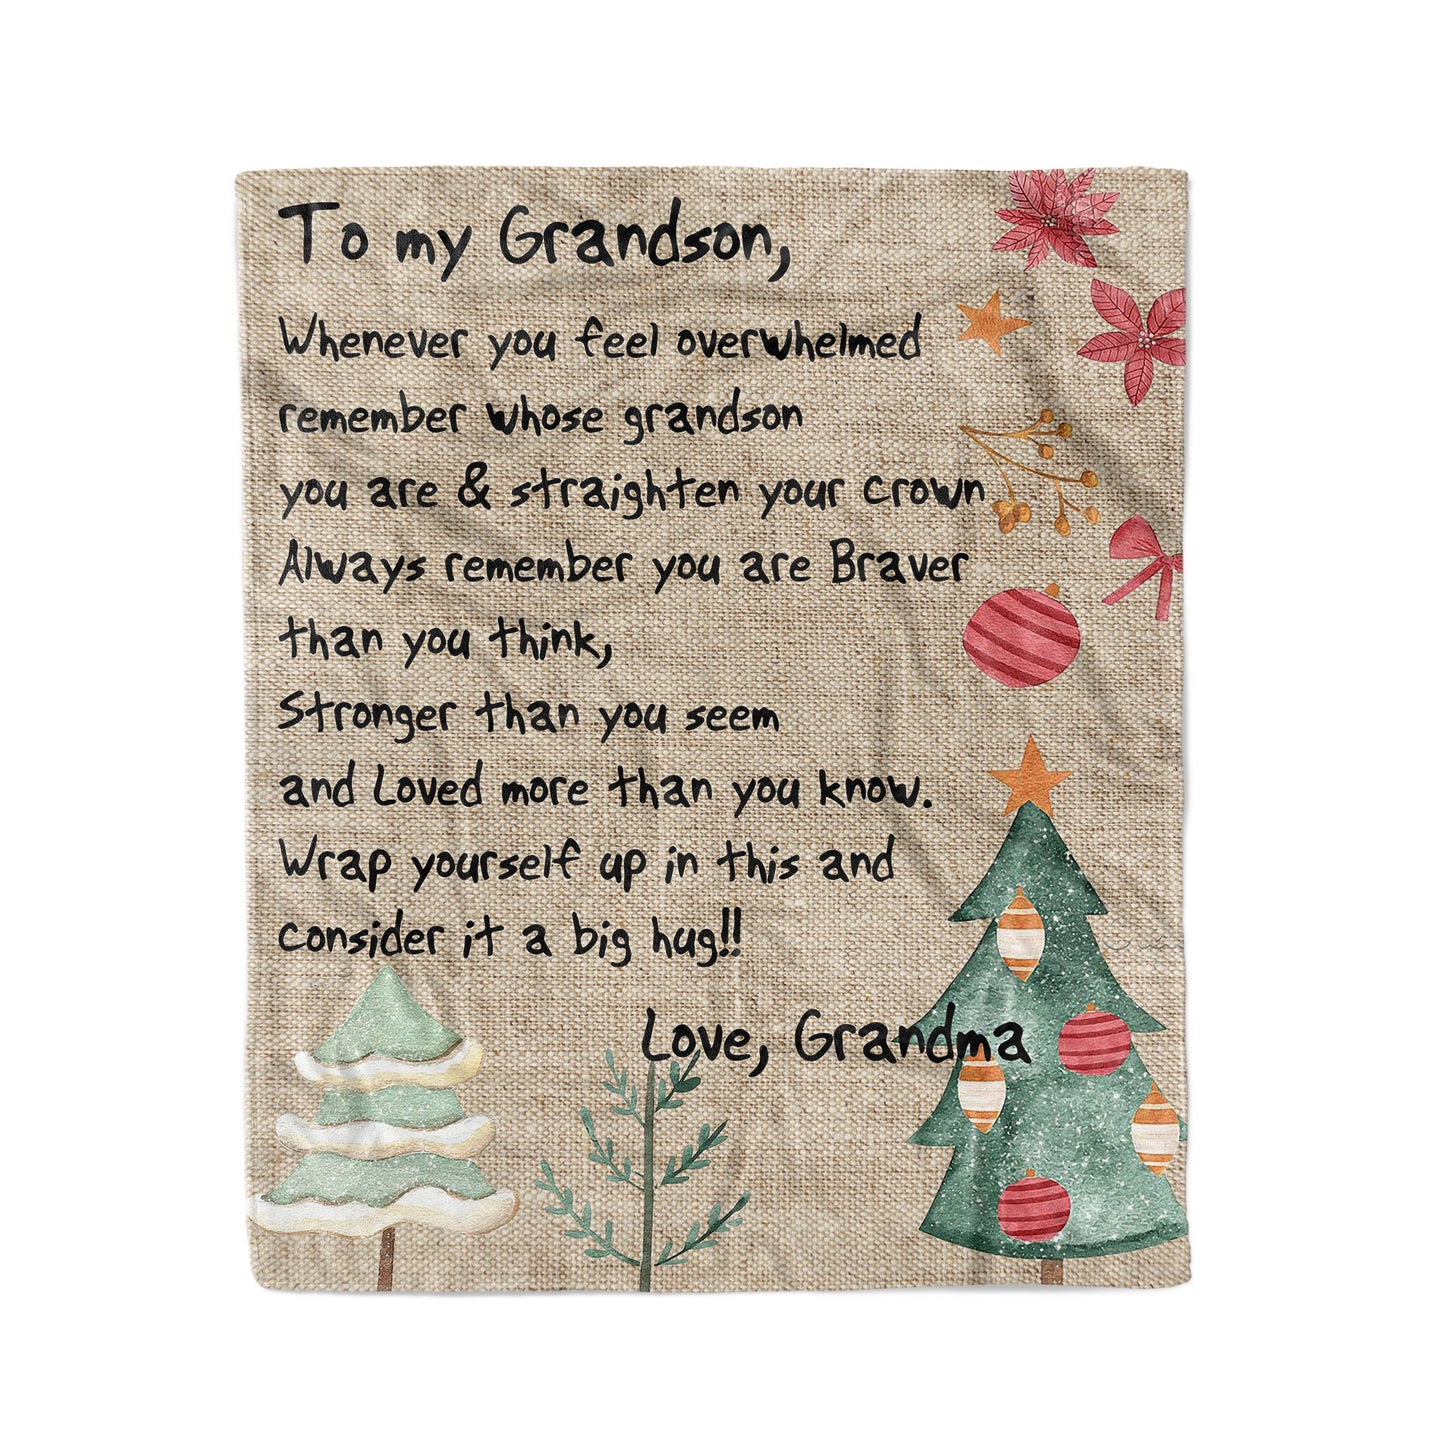 To my Grandson,
Whenever you feel overwhelmed
remember whose grandson
you are & straighten your crown
Always remember you are Braver
than you think,
Stronger than you seem
and Loved more than you know.
Wrap yourself up in this and
consider it a big hug!!
Love, Grandma